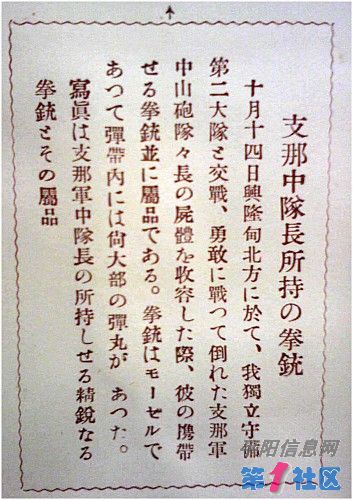 支那中隊長所持の拳銃
十月十四日興隆甸北方に於て、我獨立守備
第二大隊と交戰、勇敢に戰つて倒れた支那軍
中山砲隊々長の屍體を收容した際、彼の携帶
せる拳銃並に屬品である。拳銃はモーゼルで
あつて彈帶内には尙大部の彈丸が あつた。
寫眞は支那軍中隊長の所持しせる精銳なる
拳銃とその屬品
阳信息网
第1社区